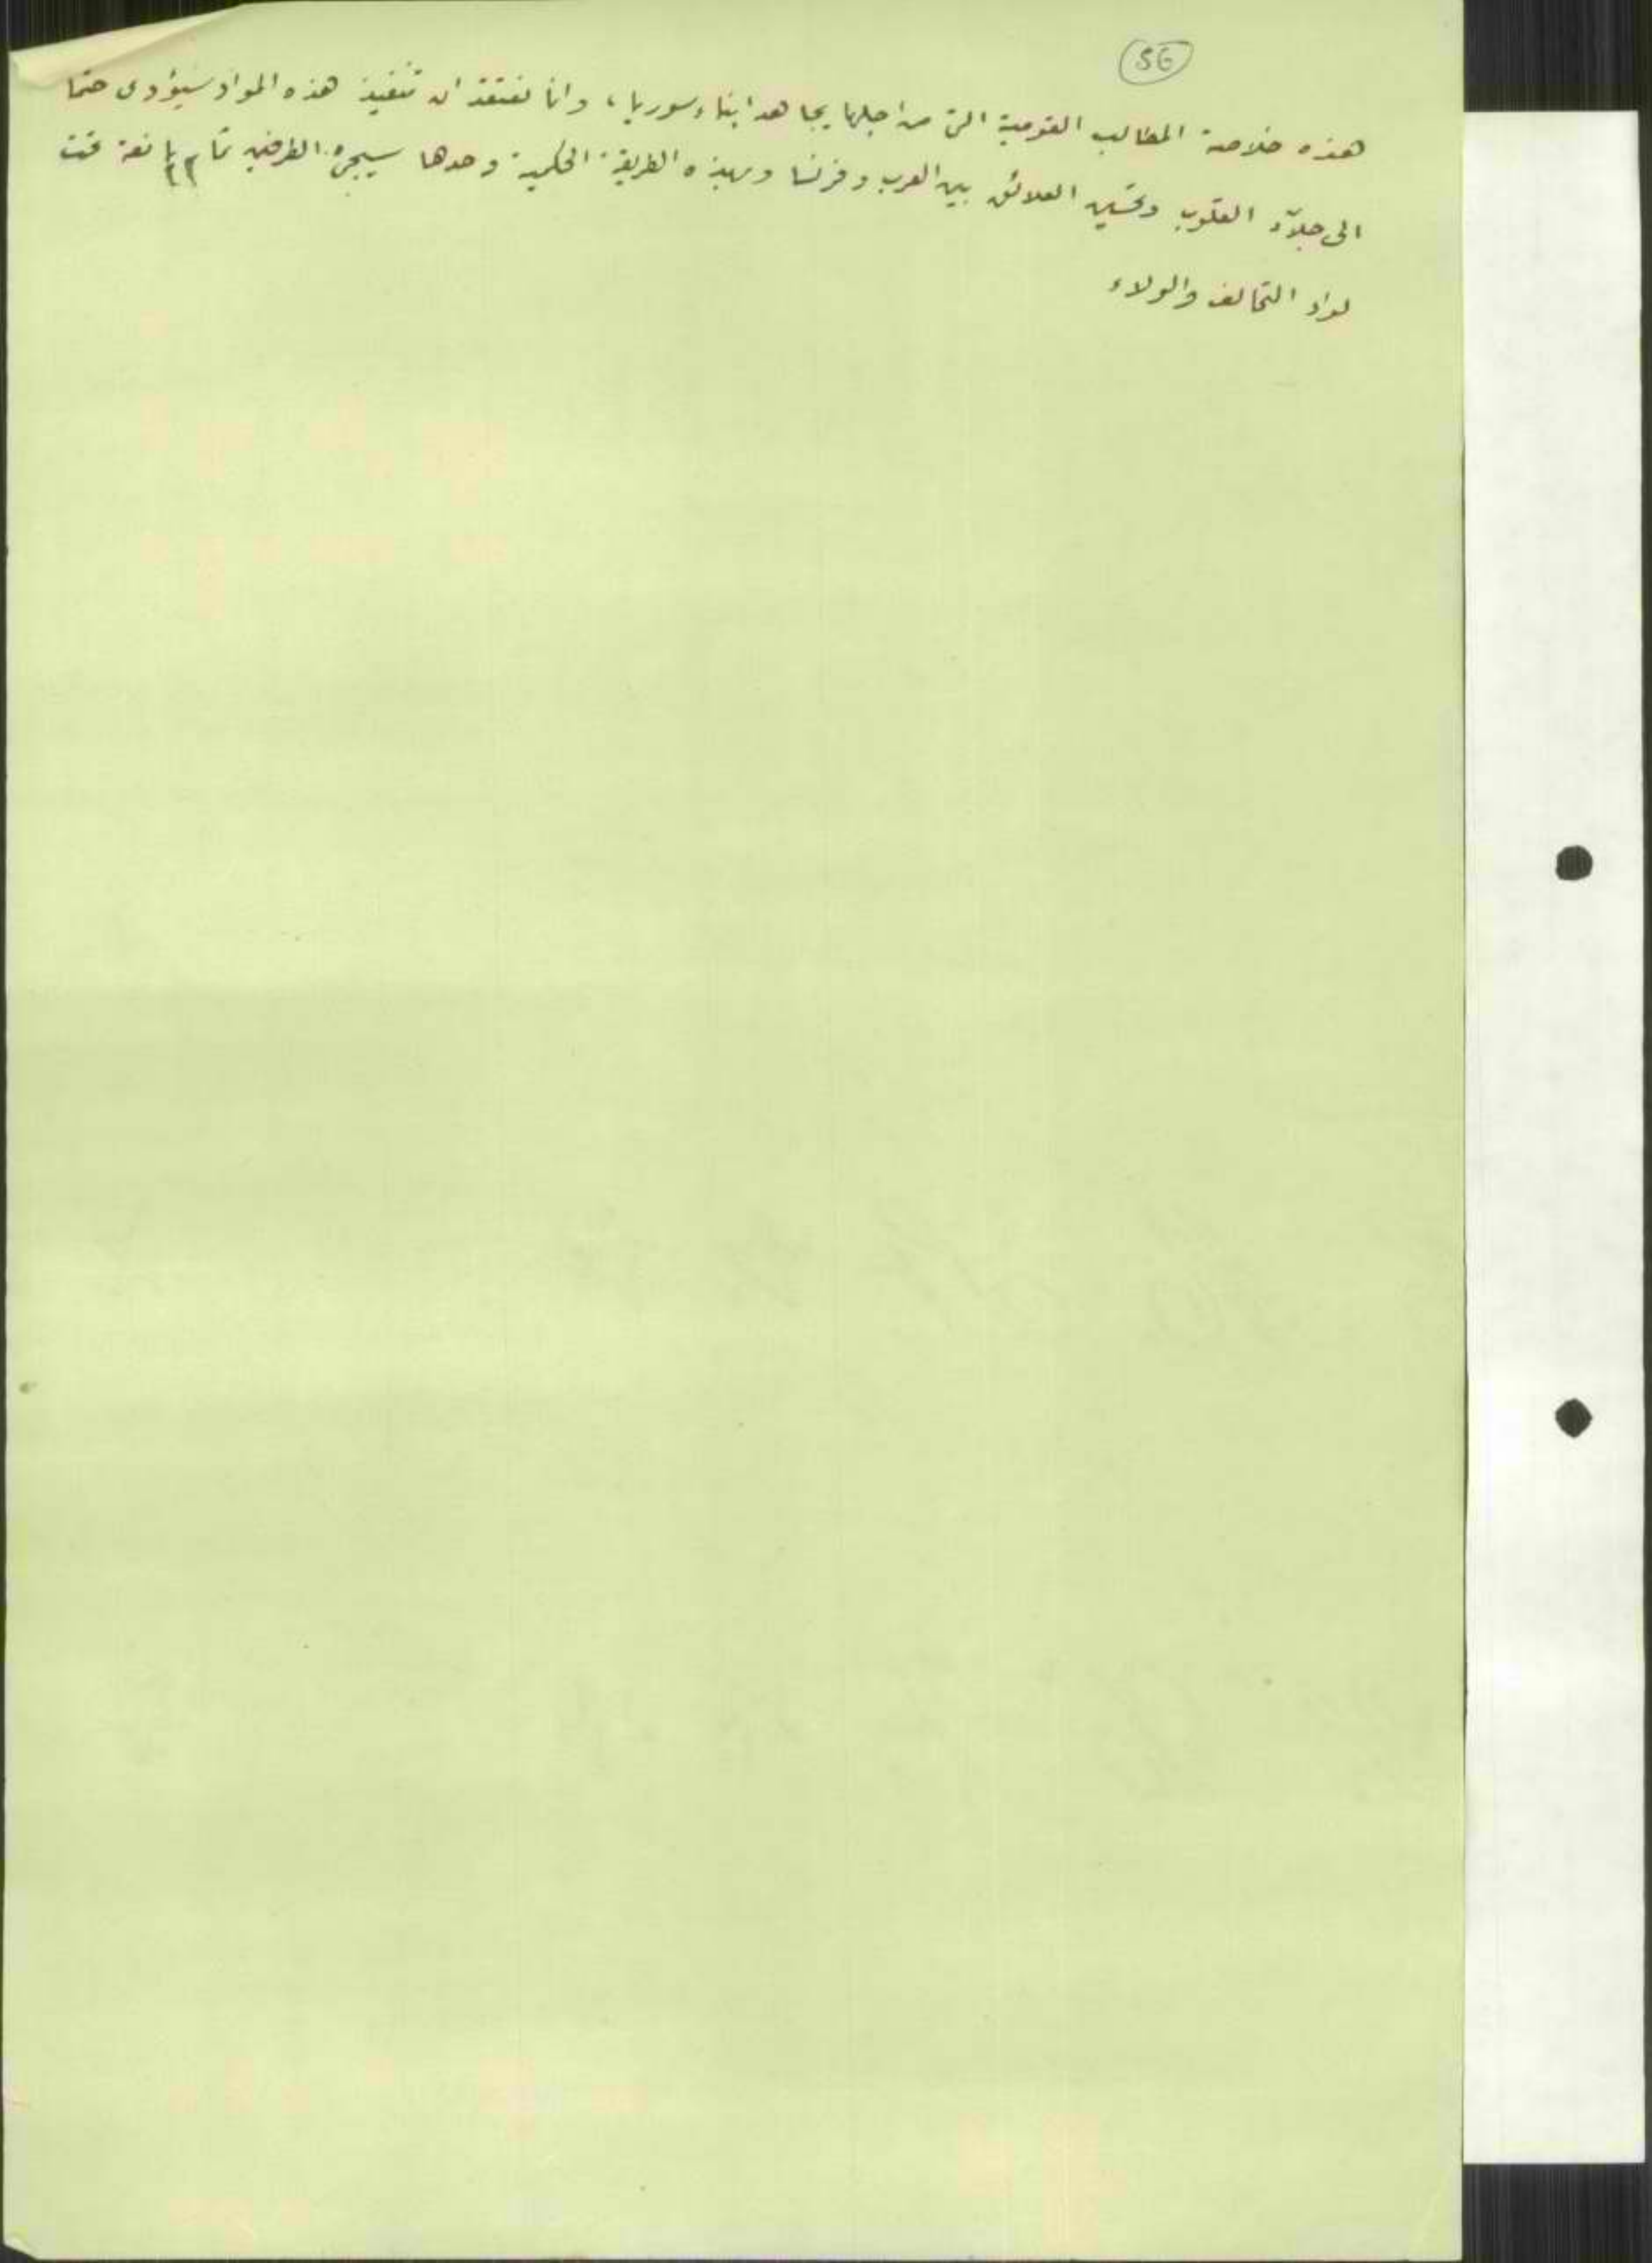 56
هذه خلاصة المطالب القومية التي من اجلها يجاهد ابناء سوريا، وانا نعتقد ان تنفيذ هذه المواد سيؤدى حتما
الى جلاء القلوب وتحسين العلائق بين العرب وفرنسا وبهذه الطريقة الحكمية وحدها سيجني الطرفين يانعة تحت
لواء التحالف والولاء